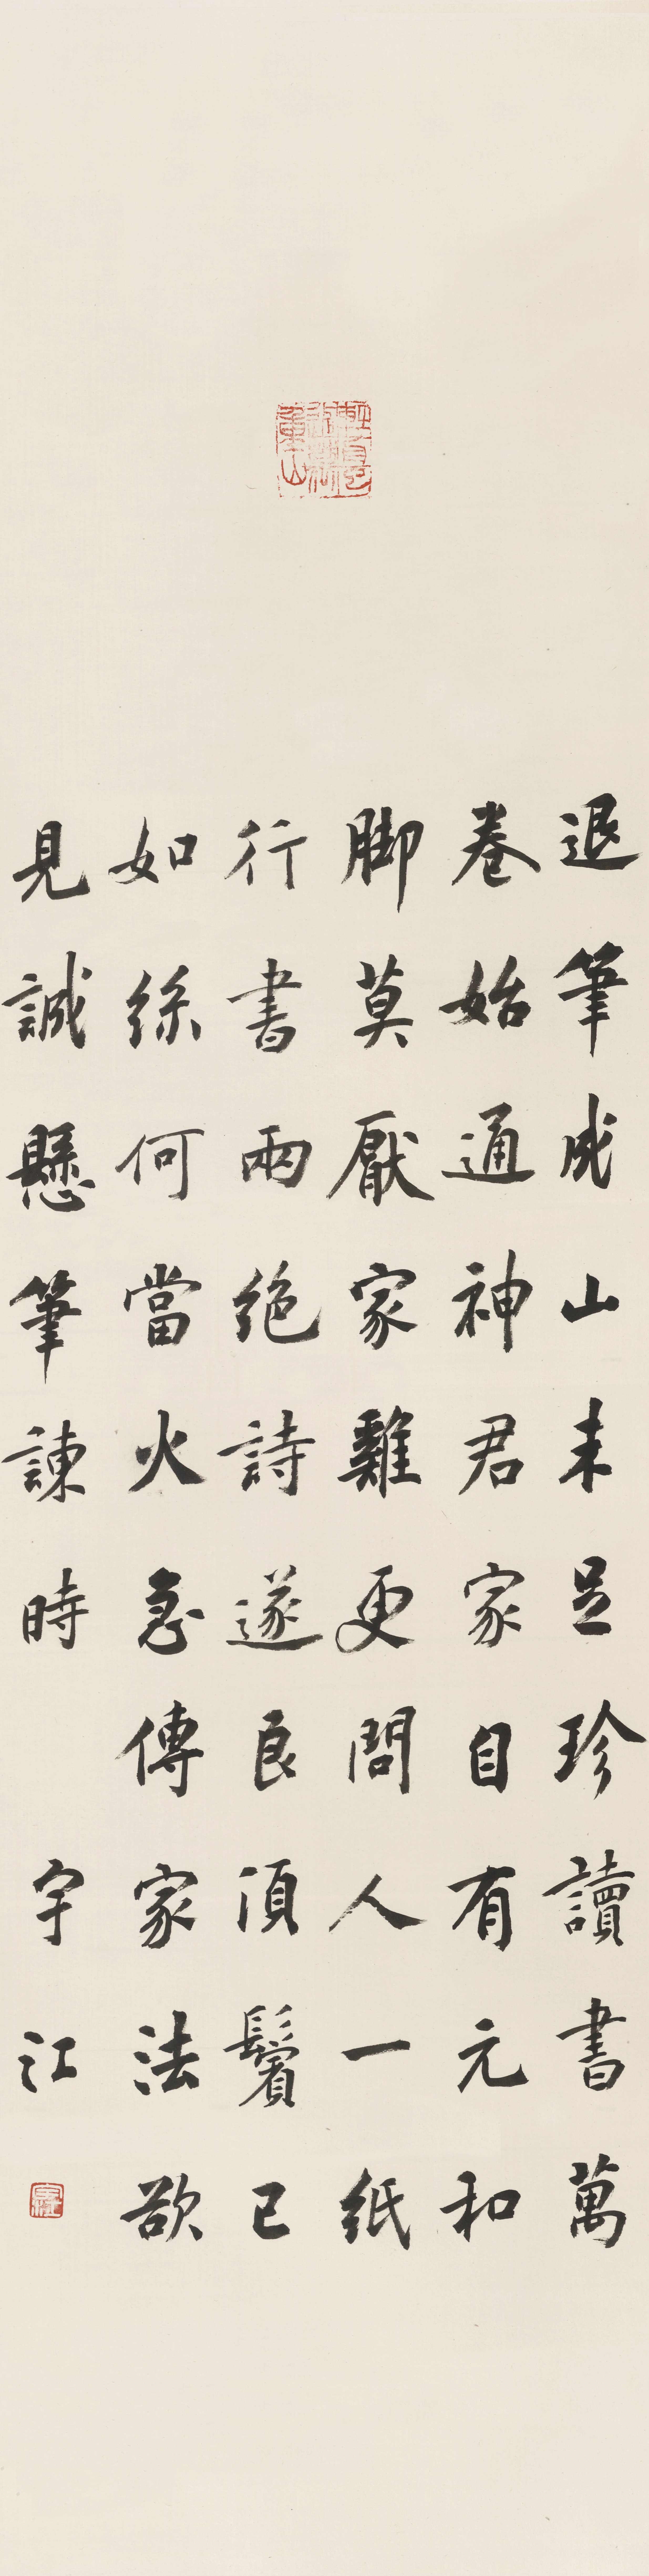 退筆成山未足珍讀書萬
卷始通神君家自有元和
脚莫厭家雞更問人一紙
行書兩絕詩遂良須鬢已
如絲何當火急傳家法欲
見誠懸筆諫時
宇江